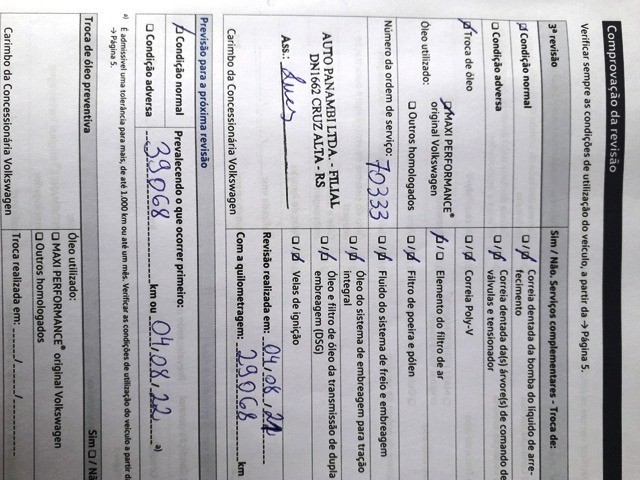 Comprovação da revisão
Verificar sempre as condições de utilização do veículo, a partir da → Página 5.
3ª revisão
Condição normal
Condição adversa
Troca de óleo
Óleo utilizado:
MAXI PERFORMANCE®
original Volkswagen
Outros homologados
Número da ordem de serviço: 70333
AUTO PANAMBI LTDA. - FILIAL
DN1662 CRUZ ALTA - RS
Ass.:
Carimbo da Concessionária Volkswagen
Sim / Não. Serviços complementares - Troca de:
Correia dentada da bomba do líquido de arre-
fecimento
Correia dentada da(s) árvore(s) de comando de
válvulas e tensionador
Correia Poly-V
Elemento do filtro de ar
Filtro de poeira e pólen
Fluido do sistema de freio e embreagem
Óleo do sistema de embreagem para tração
integral
Óleo e filtro de óleo da transmissão de dupla
embreagem (DSG)
Velas de ignição
Revisão realizada em: 04.08.21
Com a quilometragem: 29068 km
Previsão para a próxima revisão
Condição normal
Condição adversa
Prevalecendo o que ocorrer primeiro:
39068 km ou 04.08.22 a)
a) É admissível uma tolerância para mais, de até 1.000 km ou até um mês. Verificar as condições de utilização do veículo a partir da
→ Página 5.
Troca de óleo preventiva
Sim / Nã
Carimbo da Concessionária Volkswagen
Óleo utilizado:
MAXI PERFORMANCE® original Volkswagen
Outros homologados
Troca realizada em: ____/____/____